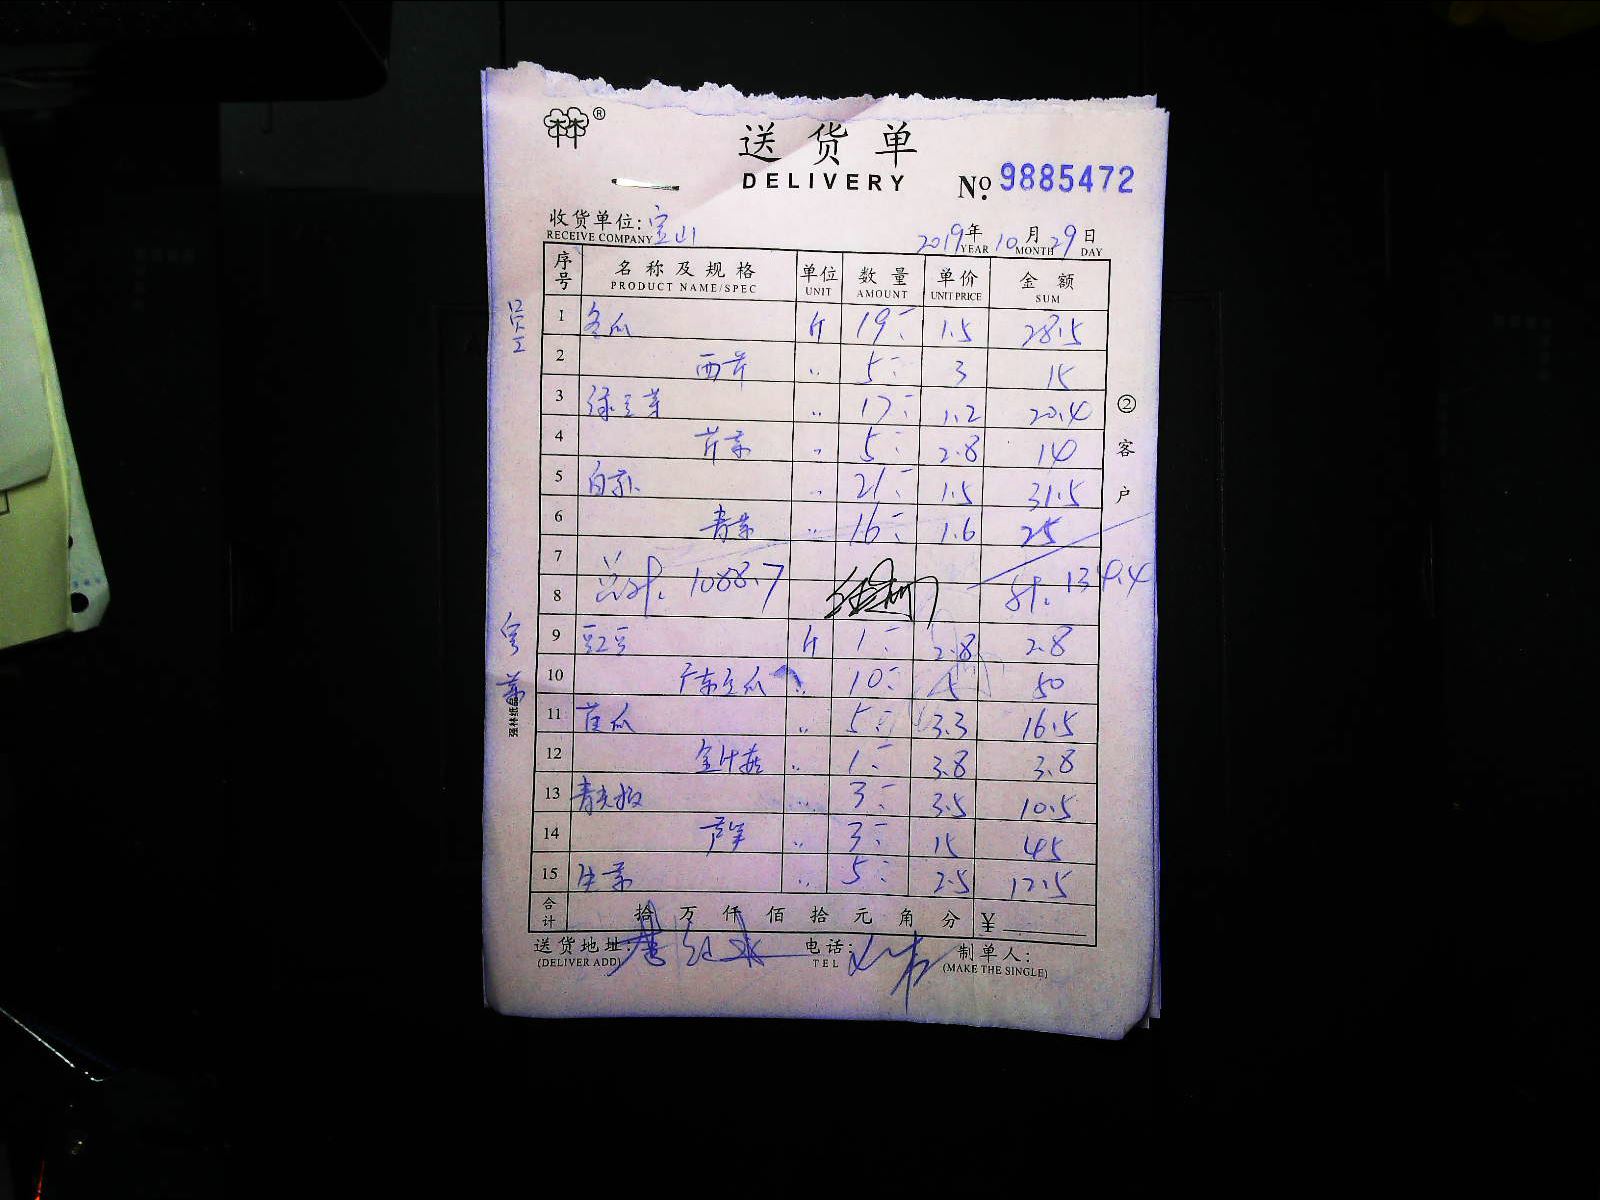 ®
送货单
DELIVERY
No. 9885472
收货单位: 宝山
RECEIVE COMPANY
2019年 10月 29日
YEAR MONTH DAY
序号 名称及规格 单位 数量 单价 金额
PRODUCT NAME/SPEC UNIT AMOUNT UNIT PRICE SUM
员工
1 冬瓜 斤 19 1.5 28.5
2 西芹 〃 5 3 15
3 绿豆芽 〃 17 1.2 20.4
4 芹菜 〃 5 2.8 14
5 白菜 〃 21 1.5 31.5
6 青菜 〃 16 1.6 25
7
总计. 1088.7
8
计. 134.4
9 豇豆 斤 1 2.8 2.8
10 广东豆瓜 〃 10 5 50
11 黄瓜 〃 5 3.3 16.5
12 金针菇 〃 1 3.8 3.8
13 青尖椒 〃 3 3.5 10.5
14 芦笋 〃 3 15 45
15 生菜 〃 5 2.5 12.5
合计 拾 万 仟 佰 拾 元 角 分 ¥
送货地址: 电话: 制单人:
(DELIVER ADD) TEL (MAKE THE SINGLE)
②客户
强林纸品